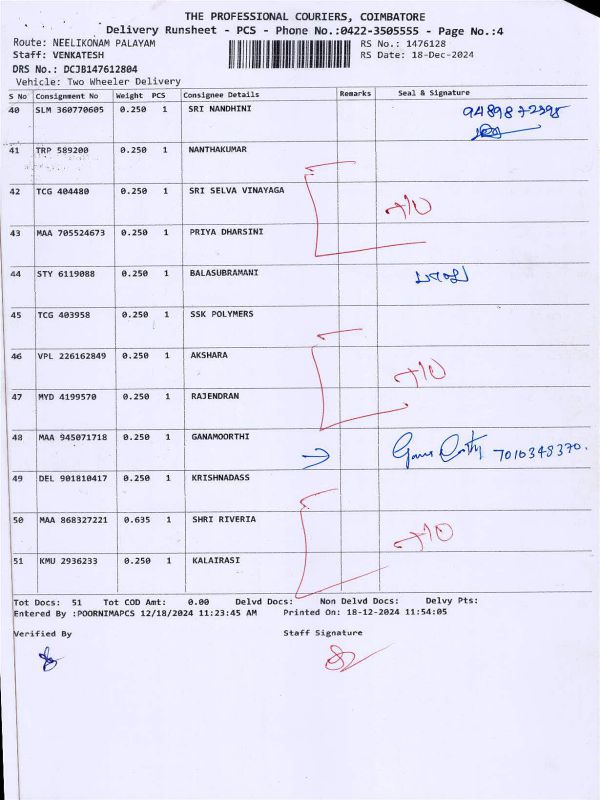 THE PROFESSIONAL COURIERS, COIMBATORE
Delivery Runsheet - PCS - Phone No.:0422-3505555 - Page No.:4
Route: NEELIKONAM PALAYAM RS No.: 1476128
Staff: VENKATESH RS Date: 18-Dec-2024
DRS No.: DCJB147612804
Vehicle: Two Wheeler Delivery
S No Consignment No Weight PCS Consignee Details Remarks Seal & Signature
40 SLM 360770605 0.250 1 SRI NANDHINI
41 TRP 589200 0.250 1 NANTHAKUMAR
42 TCG 404480 0.250 1 SRI SELVA VINAYAGA
43 MAA 705524673 0.250 1 PRIYA DHARSINI
44 STY 6119088 0.250 1 BALASUBRAMANI
45 TCG 403958 0.250 1 SSK POLYMERS
46 VPL 226162849 0.250 1 AKSHARA
47 MYD 4199570 0.250 1 RAJENDRAN
48 MAA 945071718 0.250 1 GANAMOORTHI 7010348370.
49 DEL 901810417 0.250 1 KRISHNADASS
50 MAA 868327221 0.635 1 SHRI RIVERIA
51 KMU 2936233 0.250 1 KALAIRASI
Tot Docs: 51 Tot COD Amt: 0.00 Delvd Docs: Non Delvd Docs: Delvy Pts:
Entered By :POORNIMAPCS 12/18/2024 11:23:45 AM Printed On: 18-12-2024 11:54:05
Verified By Staff Signature